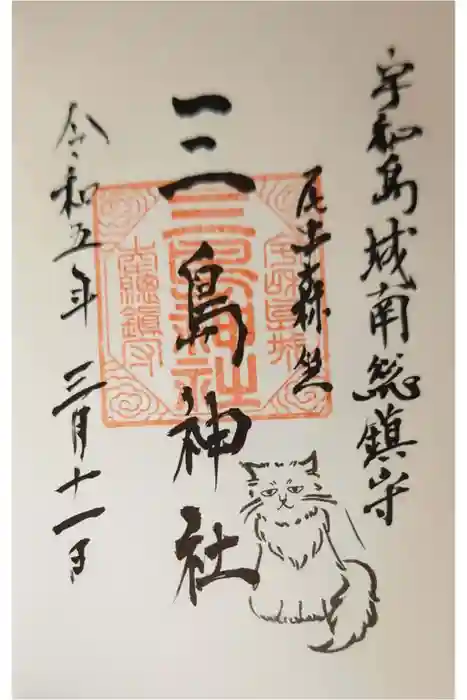 宇和島城南総鎮守
森坐
三島神社
令和五年 三月十一日
宇和島城
三島神社
南総鎮守